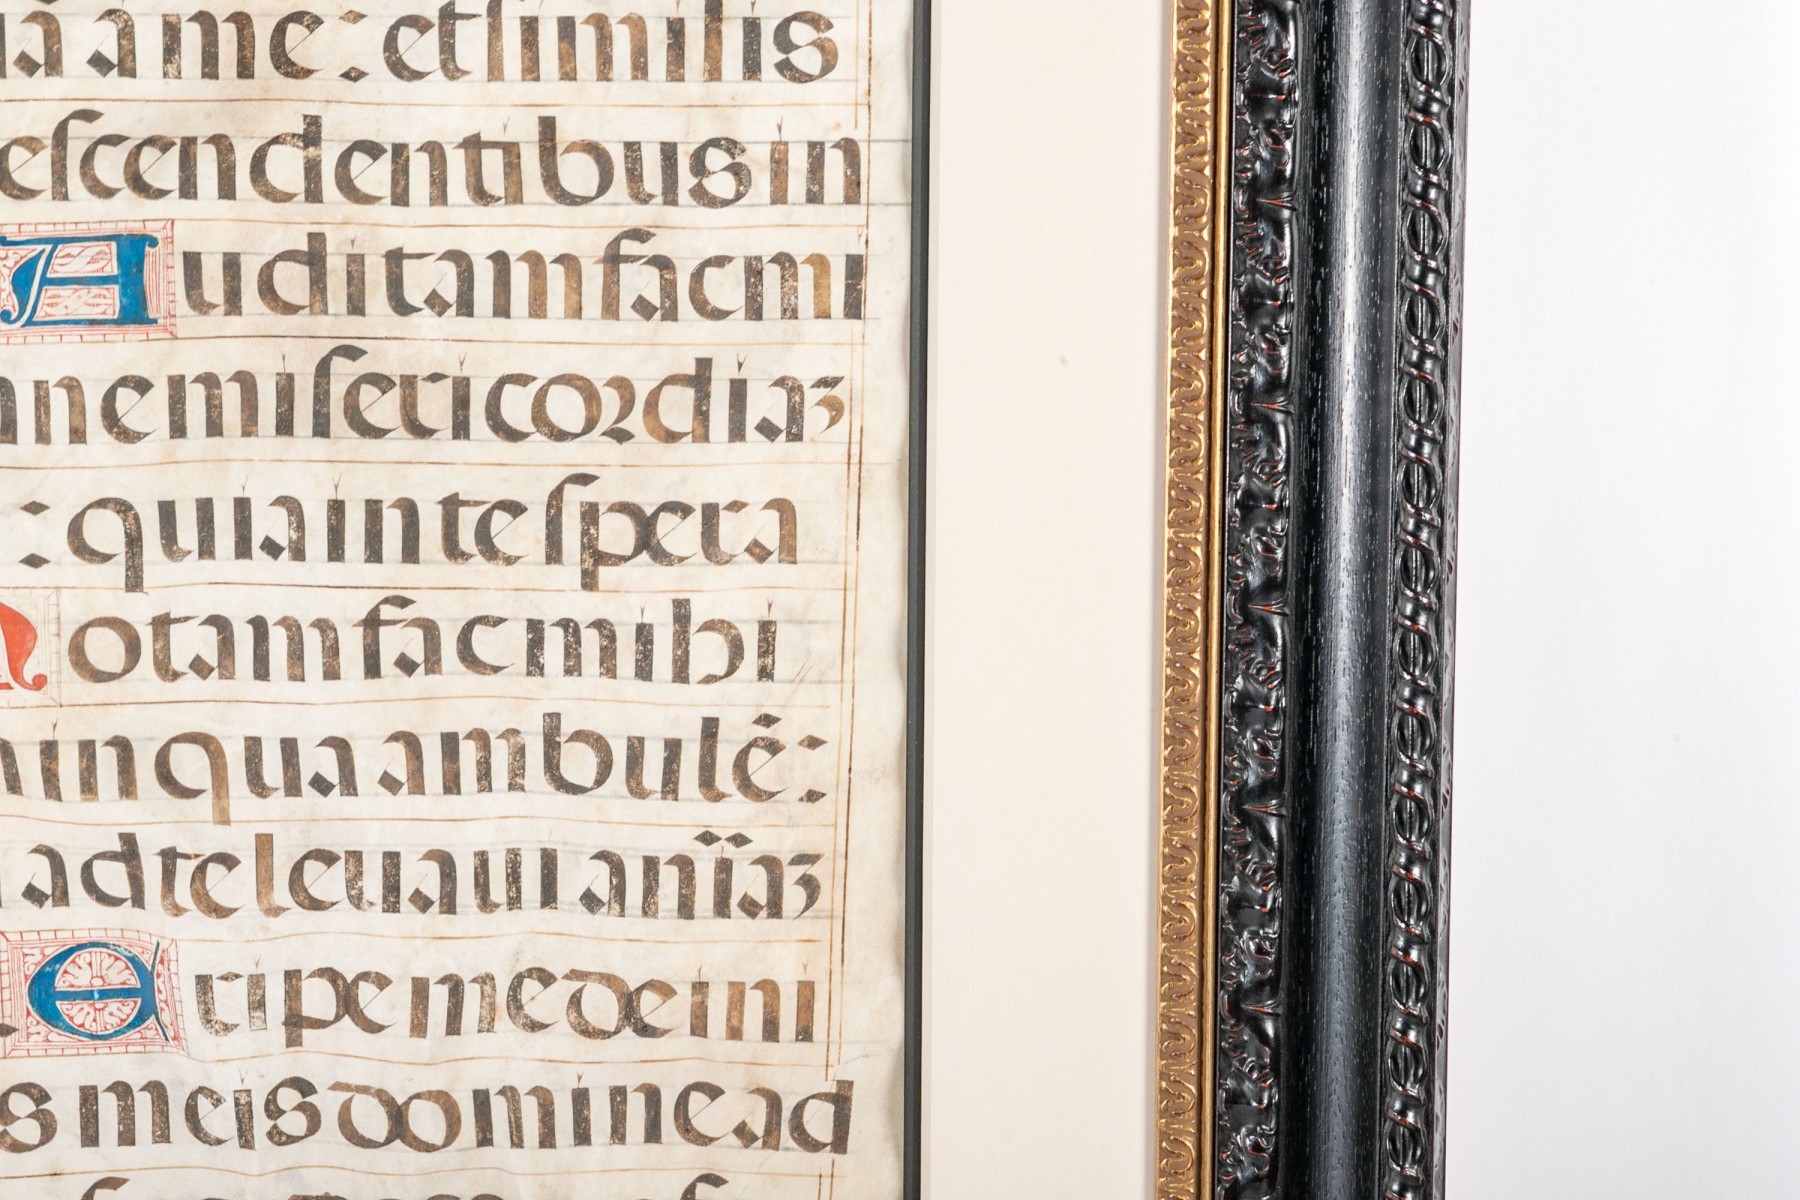 a me: et similis
escendentibus in
Auditam fac mi
ne misericordiaz
: quia in te spera
Notam fac mihi
in qua ambulē:
ad te leuaui anīaz
Eripe me de ini
s meis domine ad